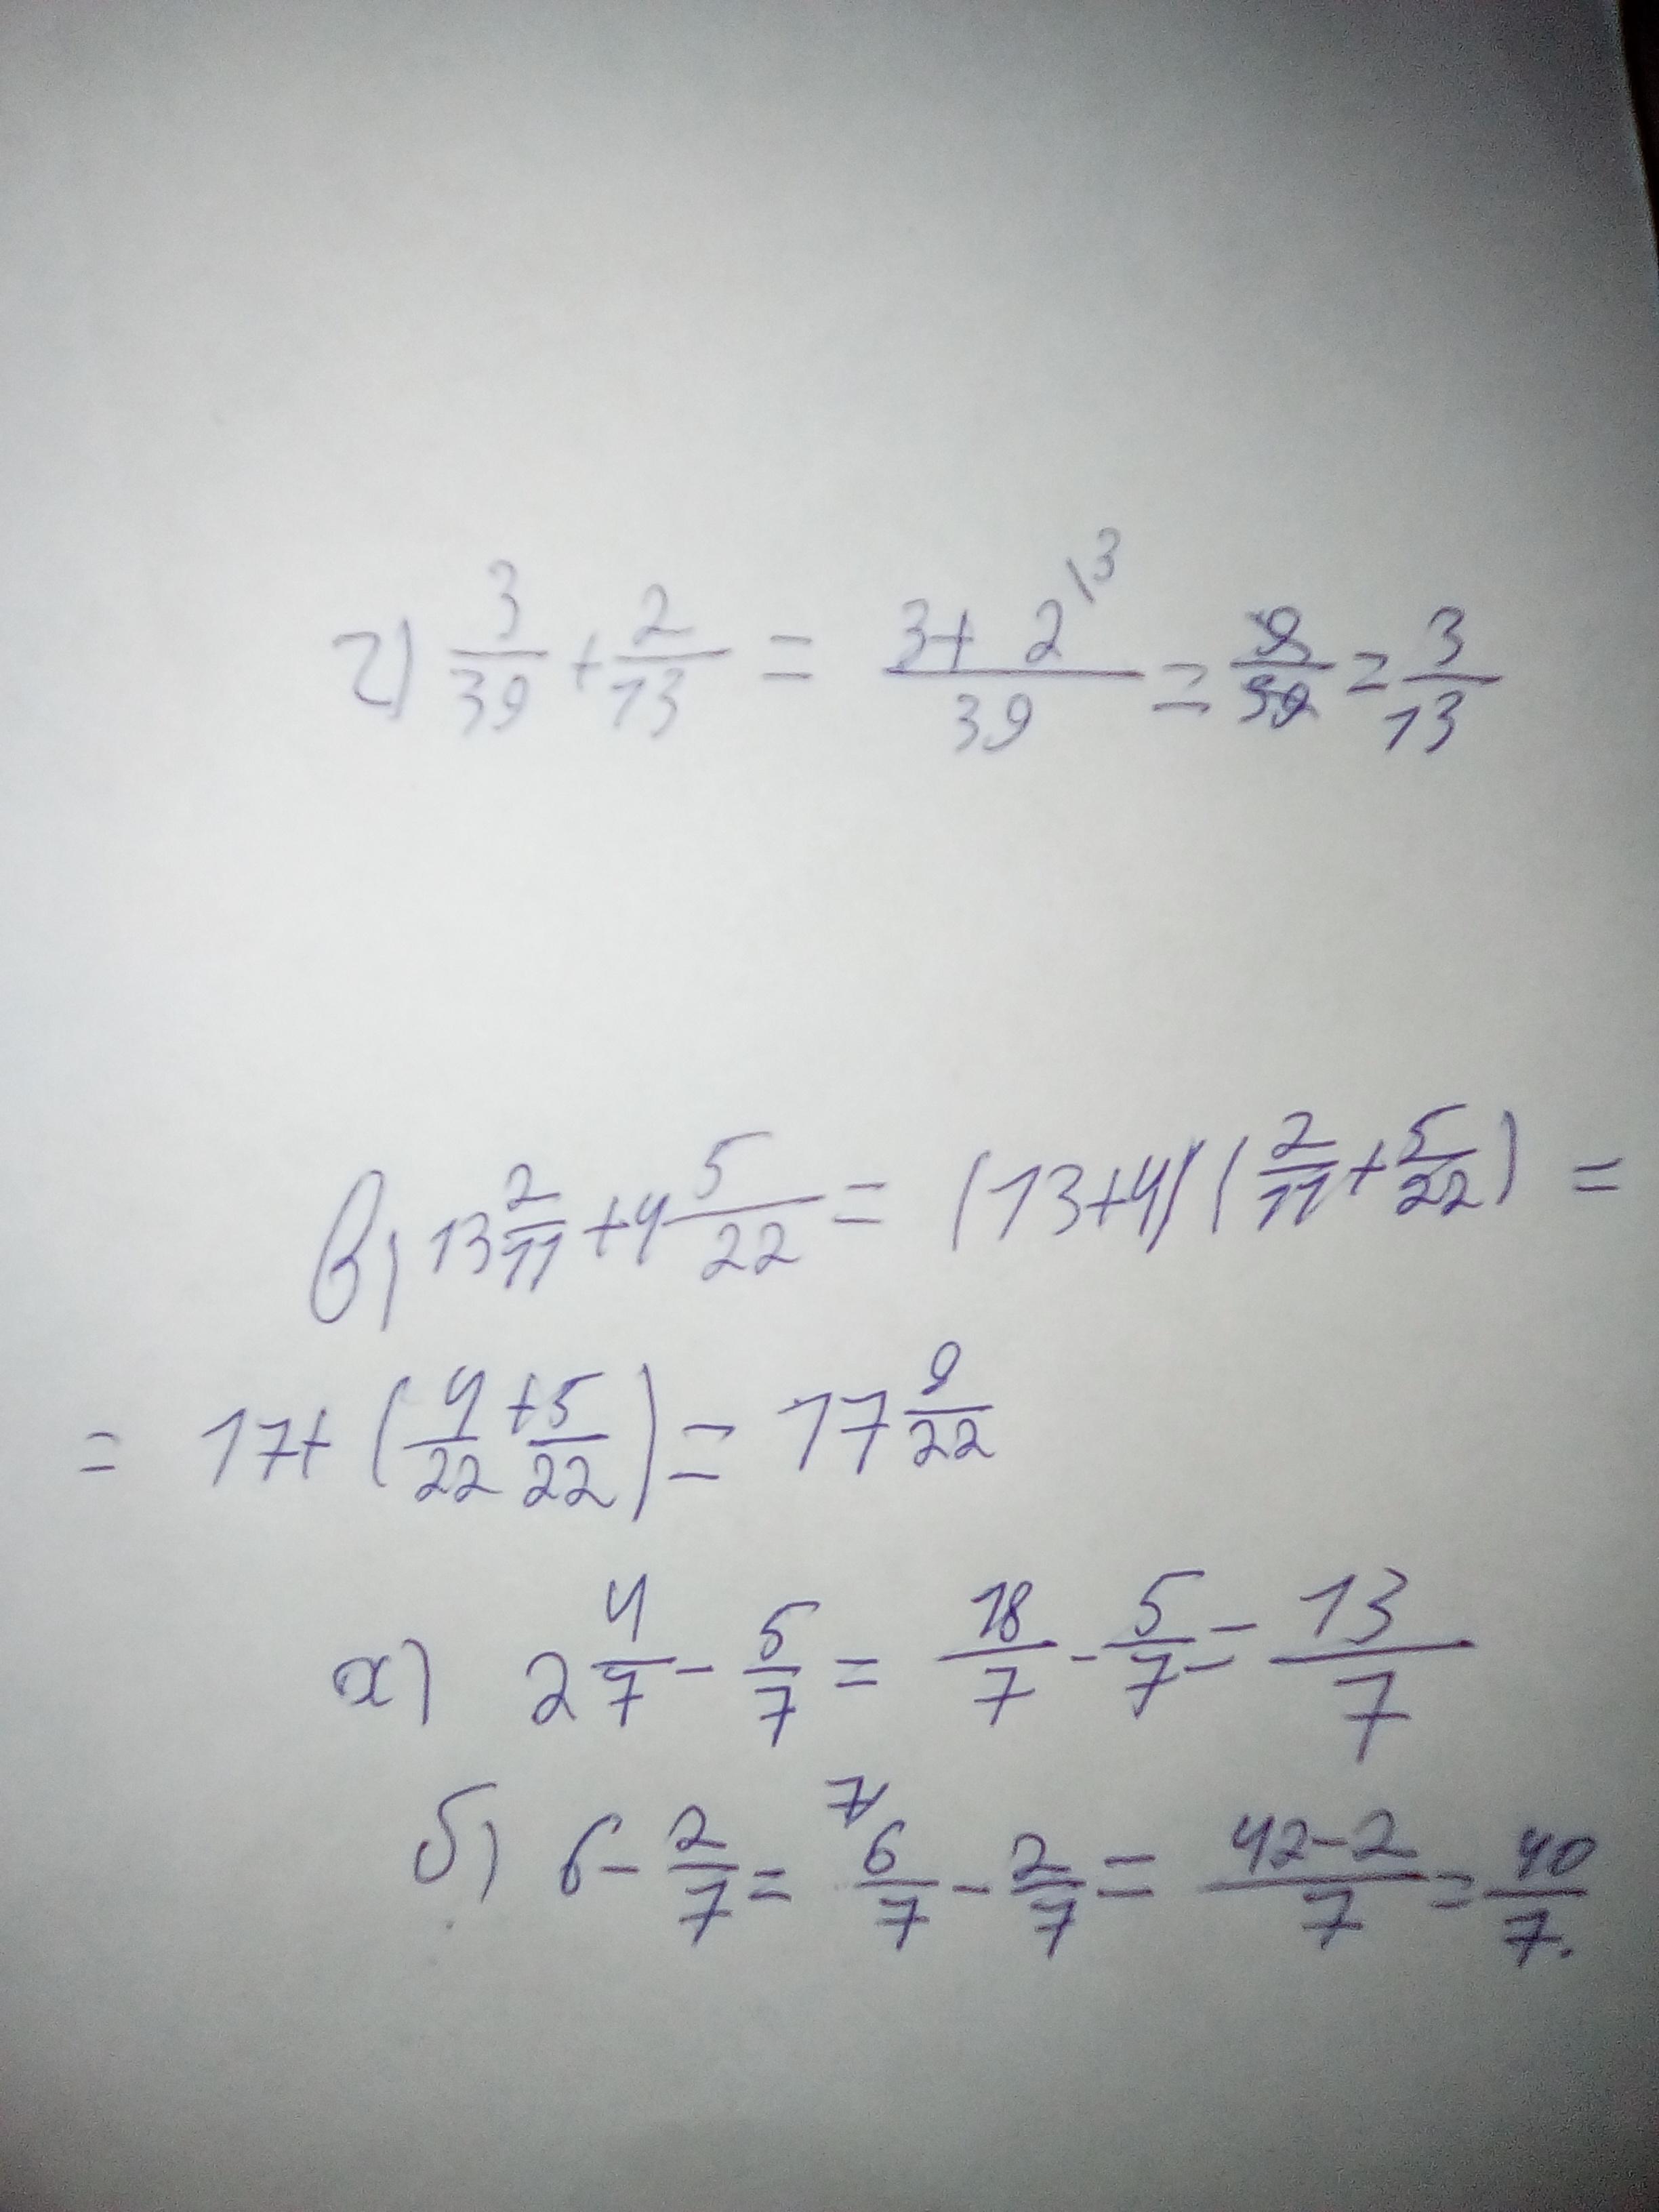 г) 3/39 + 2/13 = 3 + 2\3 / 39 = 9/39 = 3/13
в) 13 2/11 + 4 5/22 = (13+4)(2/11 + 5/22) =
= 17 + (4/22 + 5/22) = 17 9/22
а) 2 4/7 - 5/7 = 18/7 - 5/7 = 13/7
б) 6 - 2/7 = 7/6/7 - 2/7 = 42-2/7 = 40/7.